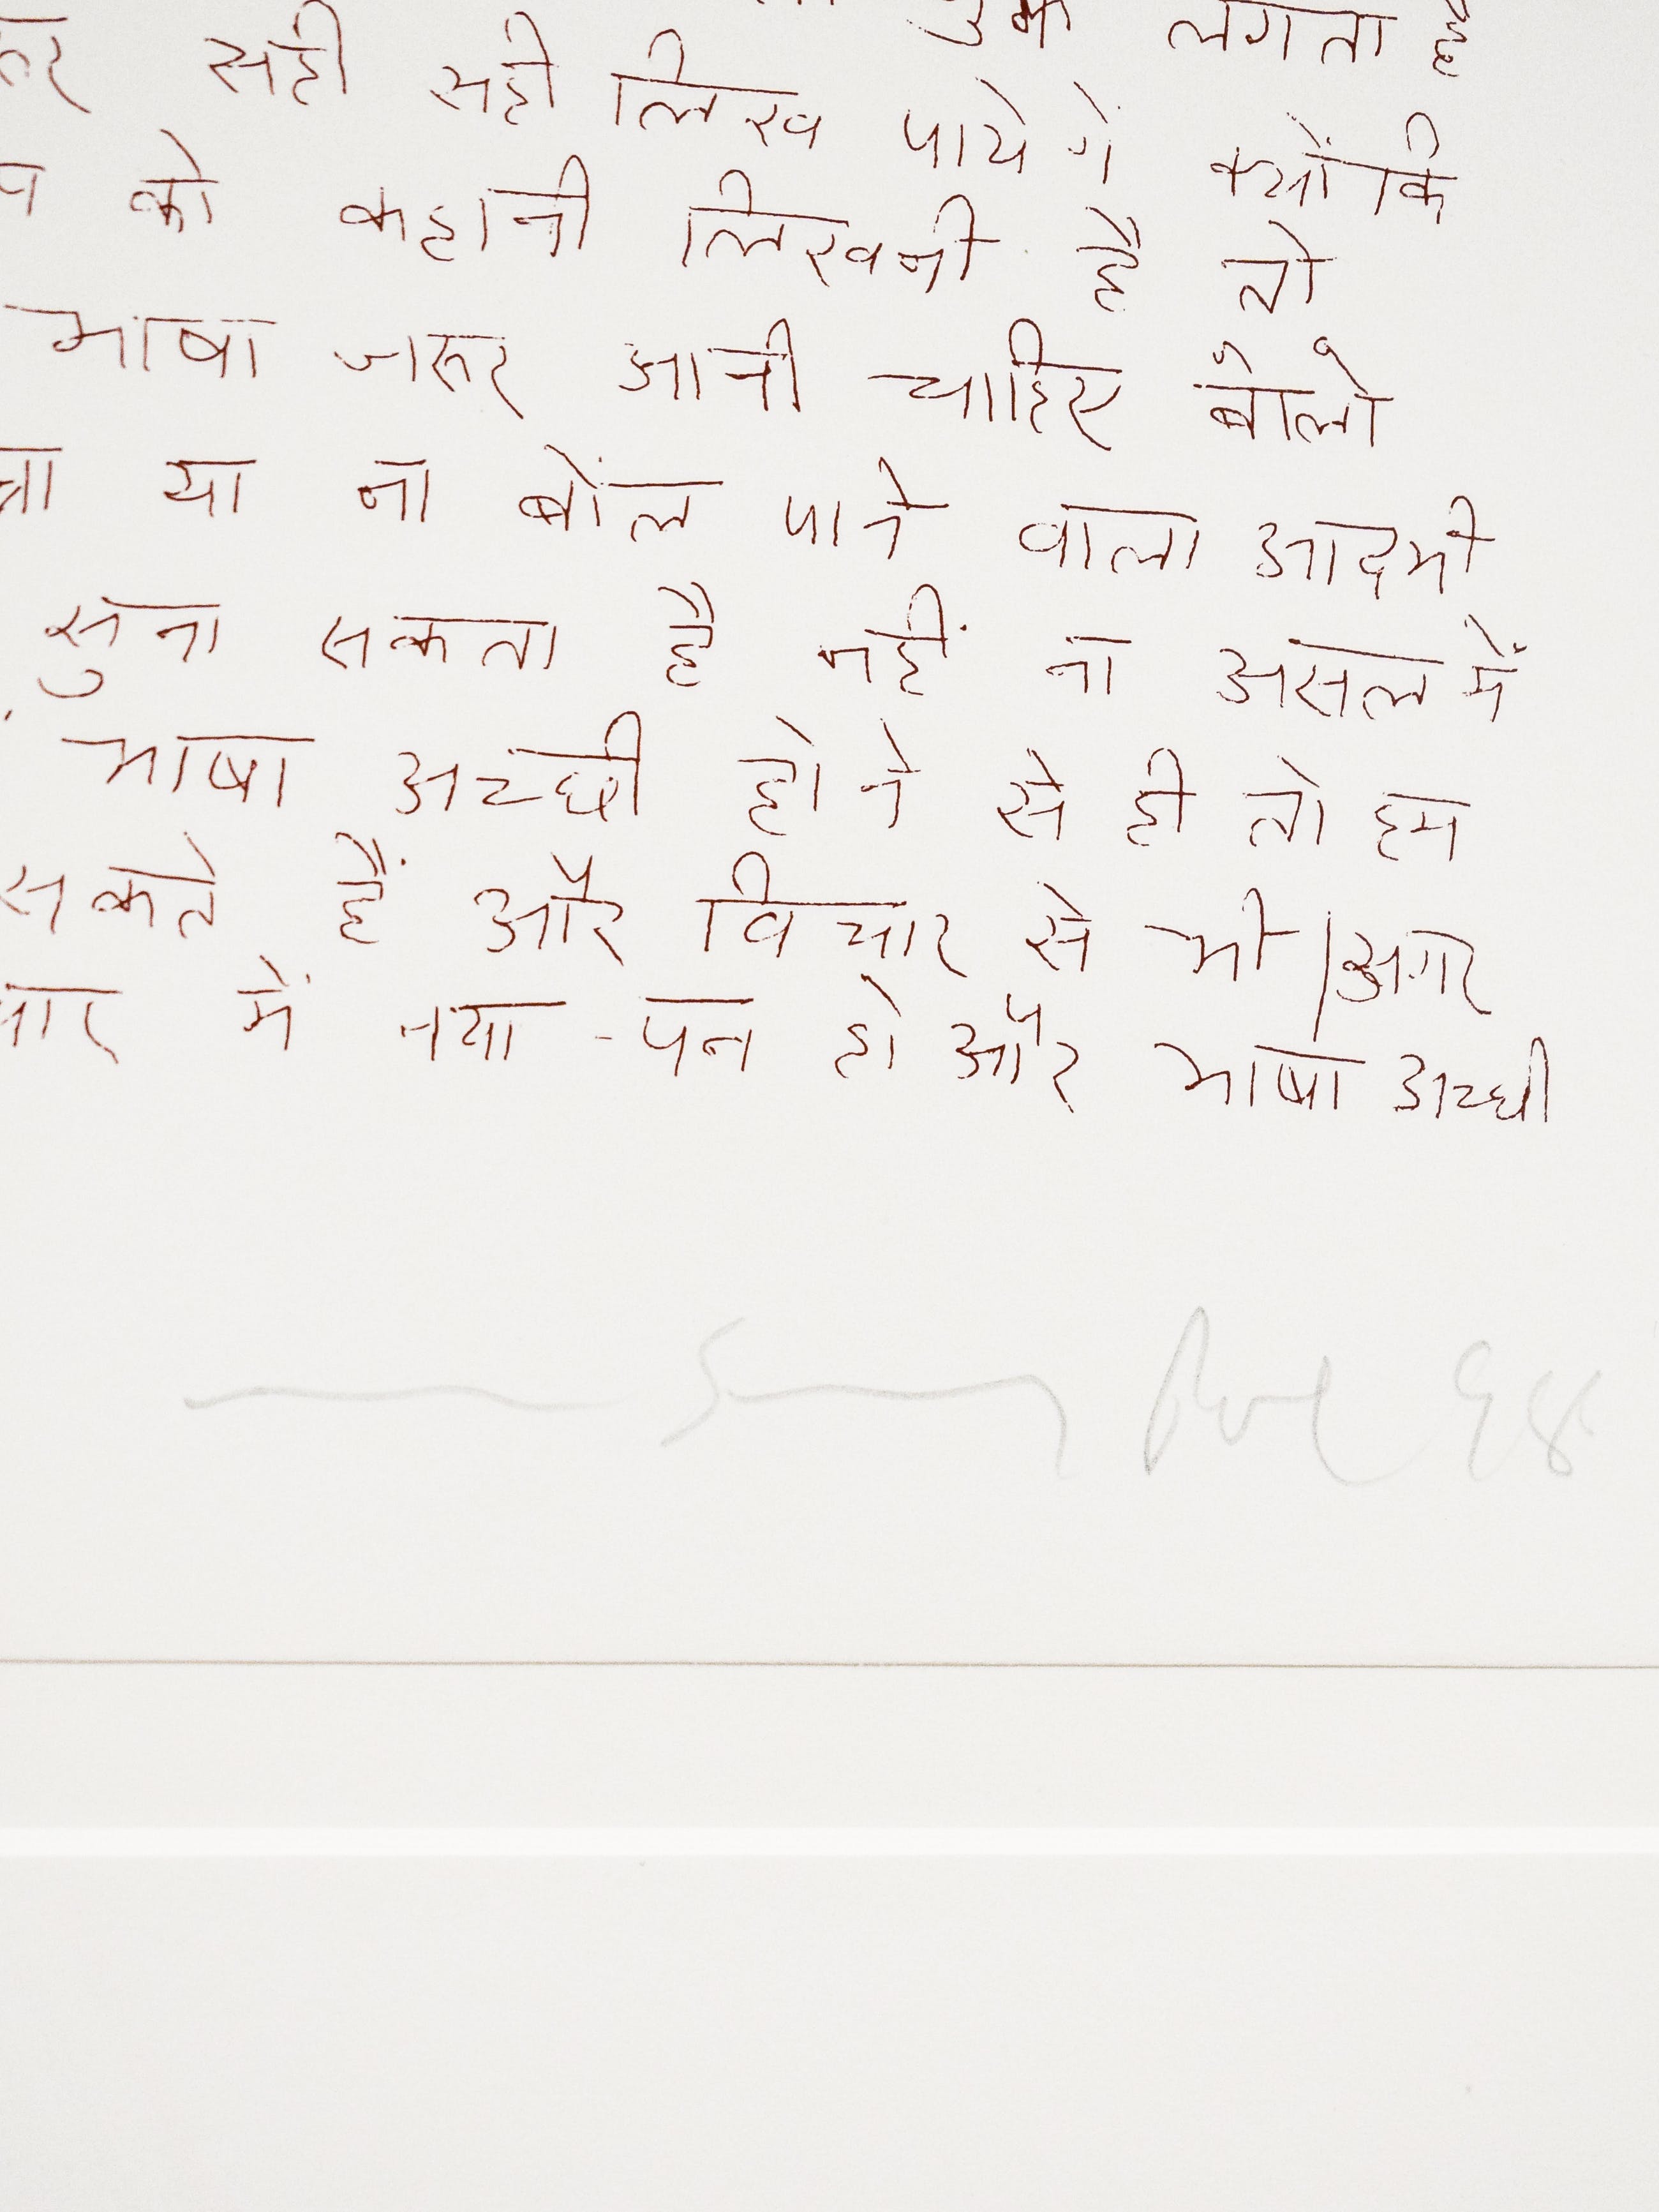 लगता है
सही सही लिख पायेगे क्योंकि
को कहानी लिखनी है तो
भाषा जरूर आनी चाहिए बोलो
या ना बोंल पाने वाला आदमी
सुना सकता है नहीं ना असल में
भाषा अच्छी होने से ही तो हम
सकते हैं और विचार से भी | अगर
में नया-पन हो और भाषा अच्छी
98